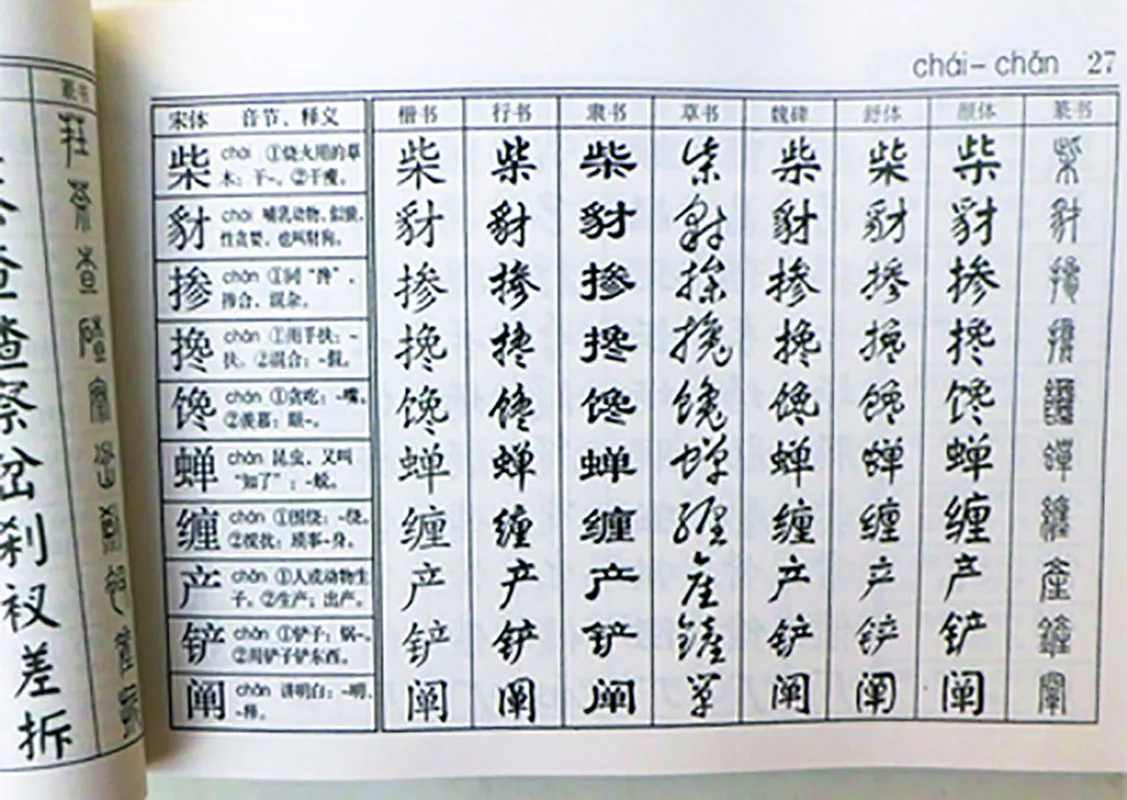 篆书
查
察
岔
刹
衩
差
拆
chái– chǎn 27
宋体 音节、释义 楷书 行书 隶书 草书 魏碑 舒体 颜体 篆书
柴 chái ①烧火用的草 柴 柴 柴 柴 柴 柴 柴 柴
木：干~。②干瘦。
豺 chái 哺乳动物，似狼， 豺 豺 豺 豺 豺 豺 豺 豺
性贪婪，也叫豺狗。
掺 chān ①同“搀”， 掺 掺 掺 掺 掺 掺 掺 掺
掺合，混杂。
搀 chān ①用手扶：~ 搀 搀 搀 搀 搀 搀 搀 搀
扶。②混合：~假。
馋 chán ①贪吃：~嘴。 馋 馋 馋 馋 馋 馋 馋 馋
②羡慕：眼~。
蝉 chán 昆虫，又叫 蝉 蝉 蝉 蝉 蝉 蝉 蝉 蝉
“知了”：~蜕。
缠 chán ①围绕：~绕。 缠 缠 缠 缠 缠 缠 缠 缠
②搅扰：琐事~身。
产 chǎn ①人或动物生 产 产 产 产 产 产 产 產
子。②生产；出产。
铲 chǎn ①铲子：锅~。 铲 铲 铲 铲 铲 铲 铲 铲
②用铲子铲东西。
阐 chǎn 讲明白：~明， 阐 阐 阐 阐 阐 阐 阐 阐
~释。